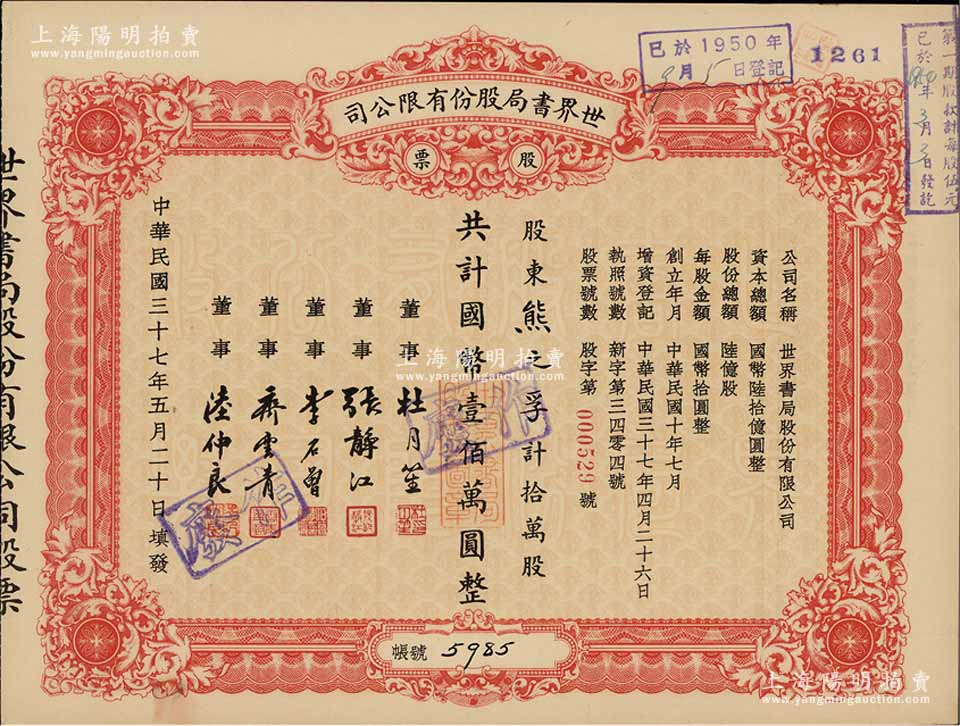 上海陽明拍賣
www.yangmingauction.com
已於1950年
9月5日登記
1261
第一期股款計每股伍元
已於
年3月2日發訖
世界書局股份有限公司
股票
公司名稱 世界書局股份有限公司
資本總額 國幣陸拾億圓整
股份總額 陸億股
每股金額 國幣拾圓整
創立年月 中華民國十年七月
增資登記 中華民國三十七年四月二十六日
執照號數 新字第三四零四號
股票號數 股字第000529號
股東熊之孚計拾萬股
共計國幣壹佰萬圓整
董事 杜月笙
董事 張靜江
董事 李石曾
董事 齊雲青
董事 陸仲良
中華民國三十七年五月二十日填發
作廢
作廢
帳號 5985
世界書局股份有限公司股票
上海陽明拍賣
www.yangmingauction.com
上海陽明拍賣
www.yangmingauction.com